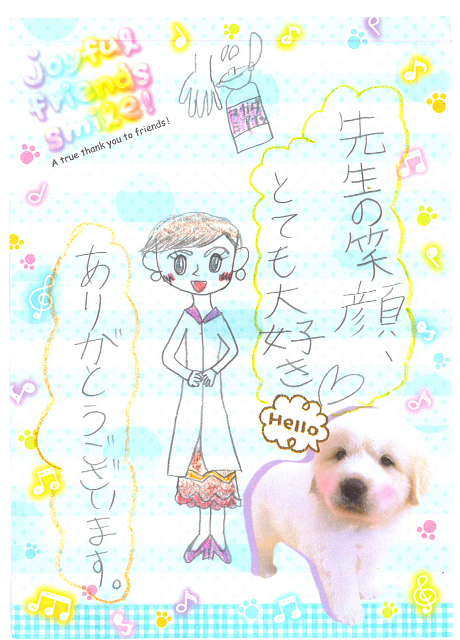 Joyful
friends
smile!
A true thank you to friends!
先生の笑顔、
とても大好き
ありがとうございます。
Hello